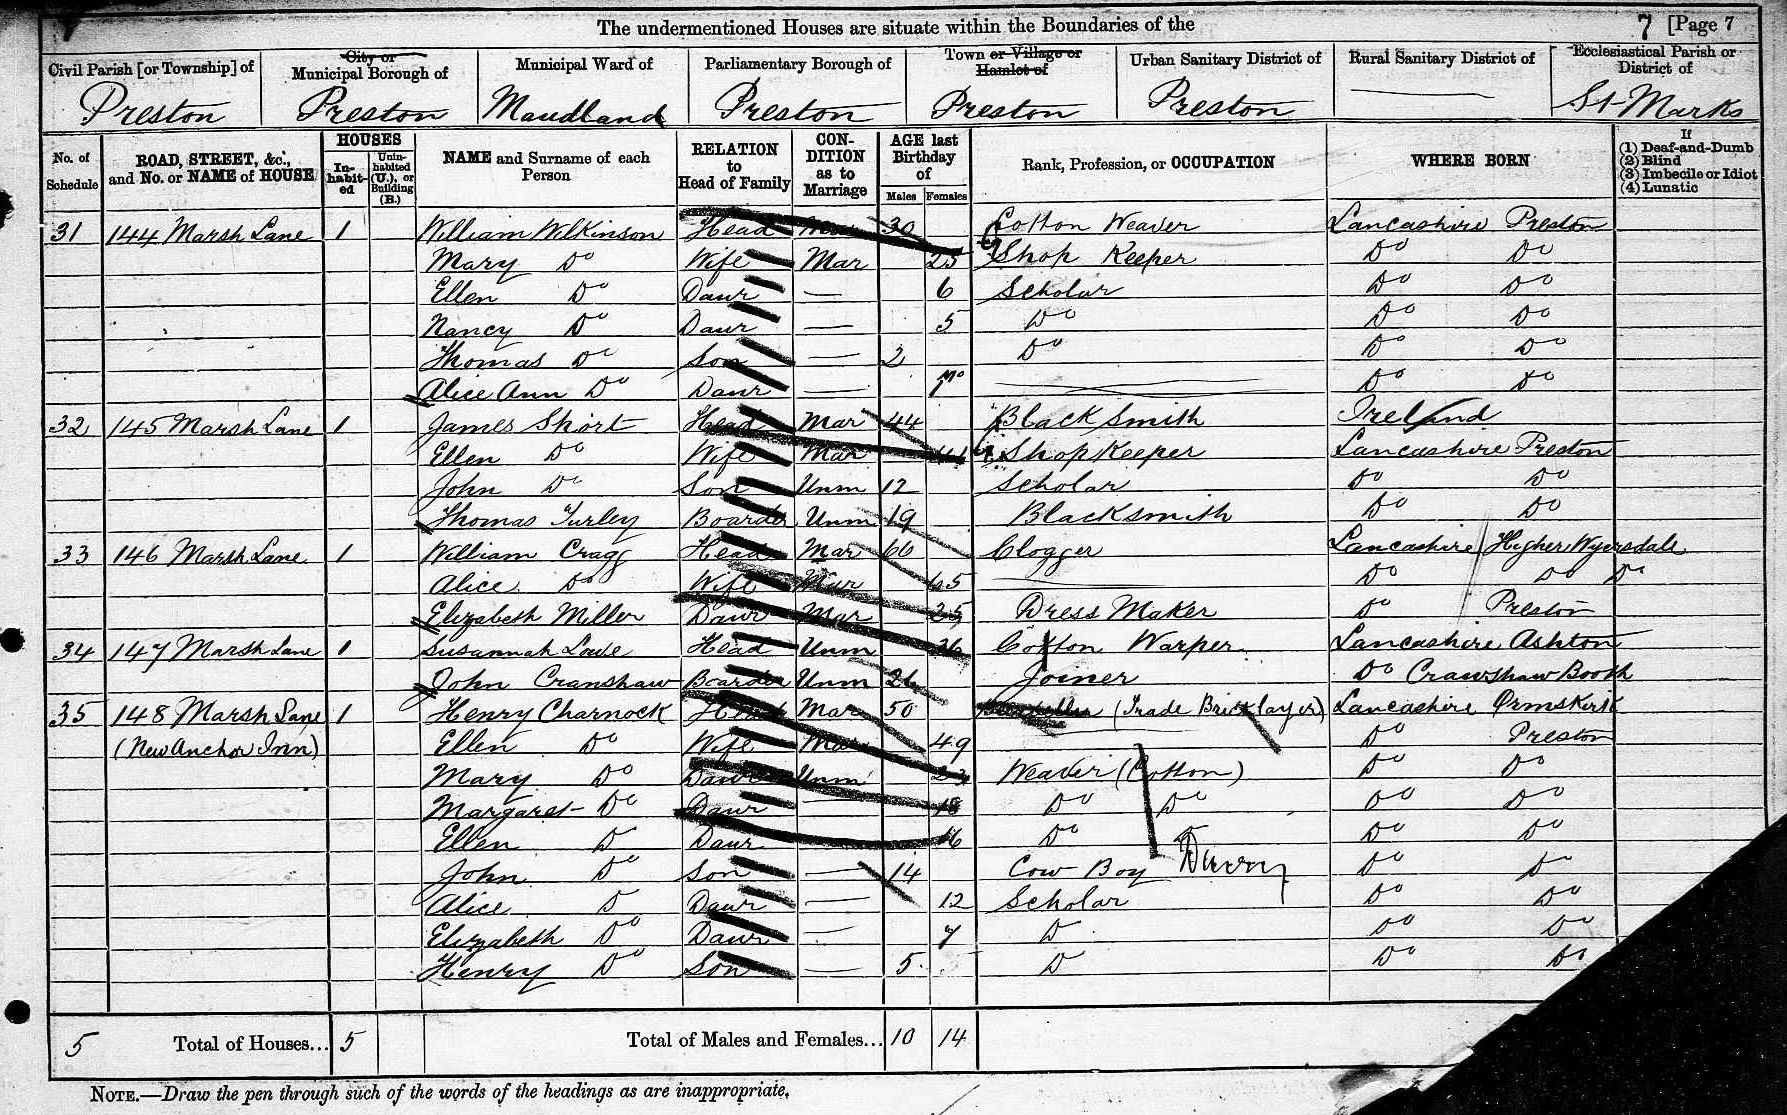 The undermentioned Houses are situate within the Boundaries of the 7 [Page 7
Civil Parish [or Township] of City or Municipal Borough of Municipal Ward of Parliamentary Borough of Town or Village or Hamlet of Urban Sanitary District of Rural Sanitary District of Ecclesiastical Parish or District of
Preston Preston Maudland Preston Preston Preston St Marks
No. of Schedule ROAD, STREET, &c., and No. or NAME of HOUSE HOUSES Inhabited Uninhabited (U.), or Building (B.) NAME and Surname of each Person RELATION to Head of Family CONDITION as to Marriage AGE last Birthday of Males Females Rank, Profession, or OCCUPATION WHERE BORN If (1) Deaf-and-Dumb (2) Blind (3) Imbecile or Idiot (4) Lunatic
31 144 Marsh Lane 1 William Wilkinson Head Mar 30 Cotton Weaver Lancashire Preston
Mary Do Wife Mar 25 Shop Keeper Do Do
Ellen Do Daur — 6 Scholar Do Do
Nancy Do Daur — 5 Do Do Do
Thomas Do Son — 2 Do Do Do
Alice Ann Do Daur — Mo Do Do
32 145 Marsh Lane 1 James Short Head Mar 44 Black Smith Ireland
Ellen Do Wife Mar 41 Shop Keeper Lancashire Preston
John Do Son Unm 12 Scholar Do Do
Thomas Turley Boarder Unm 19 Blacksmith Do Do
33 146 Marsh Lane 1 William Cragg Head Mar 66 Clogger Lancashire Higher Wyersdale
Alice Do Wife Mar 65 Do Do Do
Elizabeth Miller Daur Mar 25 Dress Maker Do Preston
34 147 Marsh Lane 1 Susannah Lowe Head Unm 36 Cotton Warper Lancashire Ashton
John Cranshaw Boarder Unm Joiner Do Crawshaw Booth
35 148 Marsh Lane 1 Henry Charnock Head Mar 50 (Trade Bricklayer) Lancashire Ormskirk
(New Anchor Inn) Ellen Do Wife Mar 49 Do Preston
Mary Do Daur Unm 23 Weaver (Cotton) Do Do
Margaret Do Daur — 18 Do Do Do Do
Ellen D Daur 16 Do Do Do
John Do Son — 14 Cow Boy Do D
Alice D Daur — 12 Scholar Do Do
Elizabeth Do Daur — 7 D Do Do
Henry Do Son — 5 D Do Do
5 Total of Houses... 5 Total of Males and Females... 10 14
NOTE.—Draw the pen through such of the words of the headings as are inappropriate.